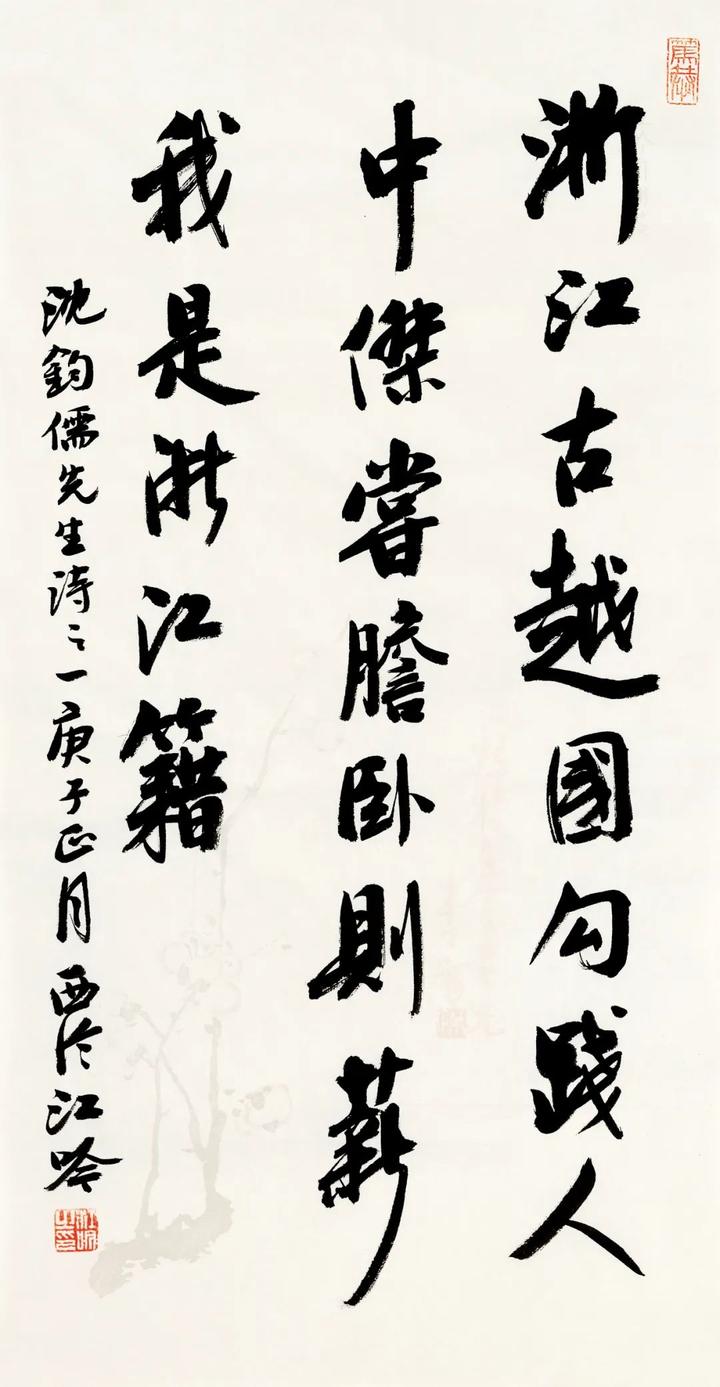 浙江古越國勾踐人
中傑嘗膽卧則薪
我是浙江籍
沈鈞儒先生詩之一庚子正月西泠江吟
江吟之印